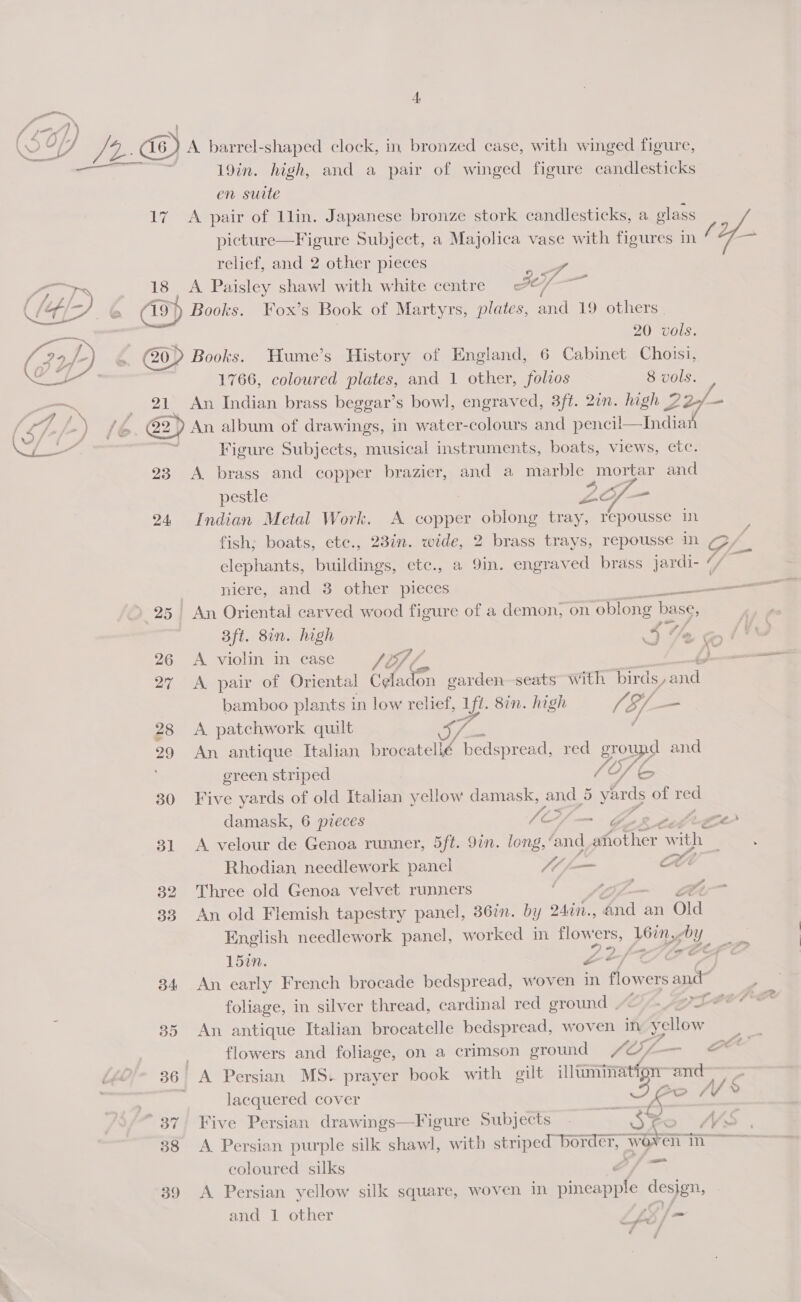 4
(50/-) /2. 16 A barrel-shaped clock, in bronzed case, with winged figure,
19in. high, and a pair of winged figure candlesticks
en suite
17 A pair of 11in. Japanese bronze stork candlesticks, a glass
picture—Figure Subject, a Majolica vase with figures in
relief, and 2 other pieces
18 A Paisley shawl with white centre
(14/-) 19 Books. Fox's Book of Martyrs, plates, and 19 others
20 vols.
20 Books. Hume's History of England, 6 Cabinet Choisi,
1766, coloured plates, and 1 other, folios 8 vols.
21 An Indian brass beggar's bowl, engraved, 3ft. 2in. high 22/-
22 An album of drawings, in water-colours and pencil—Indian
Figure Subjects, musical instruments, boats, views, etc.
23 A brass and copper brazier, and a marble mortar and
pestle
24 Indian Metal Work. A copper oblong tray, repousse in
fish, boats, etc., 23in. wide, 2 brass trays, repousse in
elephants, buildings, etc., a 9in. engraved brass jardi-
niere, and 3 other pieces
25 An Oriental carved wood figure of a demon, on oblong base,
3ft. 8in. high
26 A violin in case
27 A pair of Oriental Celadon garden seats with birds, and
bamboo plants in low relief, 1ft. 8in. high
28 A patchwork quilt
29 An antique Italian brocatellé bedspread, red ground and
green striped
30 Five yards of old Italian yellow damask, and 5 yards of red
damask, 6 pieces
31 A velour de Genoa runner, 5ft. 9in. long, and another with
Rhodian needlework panel
32 Three old Genoa velvet runners
33 An old Flemish tapestry panel, 36in. by 24in., and an Old
English needlework panel, worked in flowers, 16in. by
15in.
34 An early French brocade bedspread, woven in flowers and
foliage, in silver thread, cardinal red ground
35 An antique Italian brocatelle bedspread, woven in yellow
flowers and foliage, on a crimson ground
36 A Persian MS. prayer book with gilt illumination and
lacquered cover
37 Five Persian drawings—Figure Subjects
38 A Persian purple silk shawl, with striped border, woven in
coloured silks
39 A Persian yellow silk square, woven in pineapple design,
and 1 other